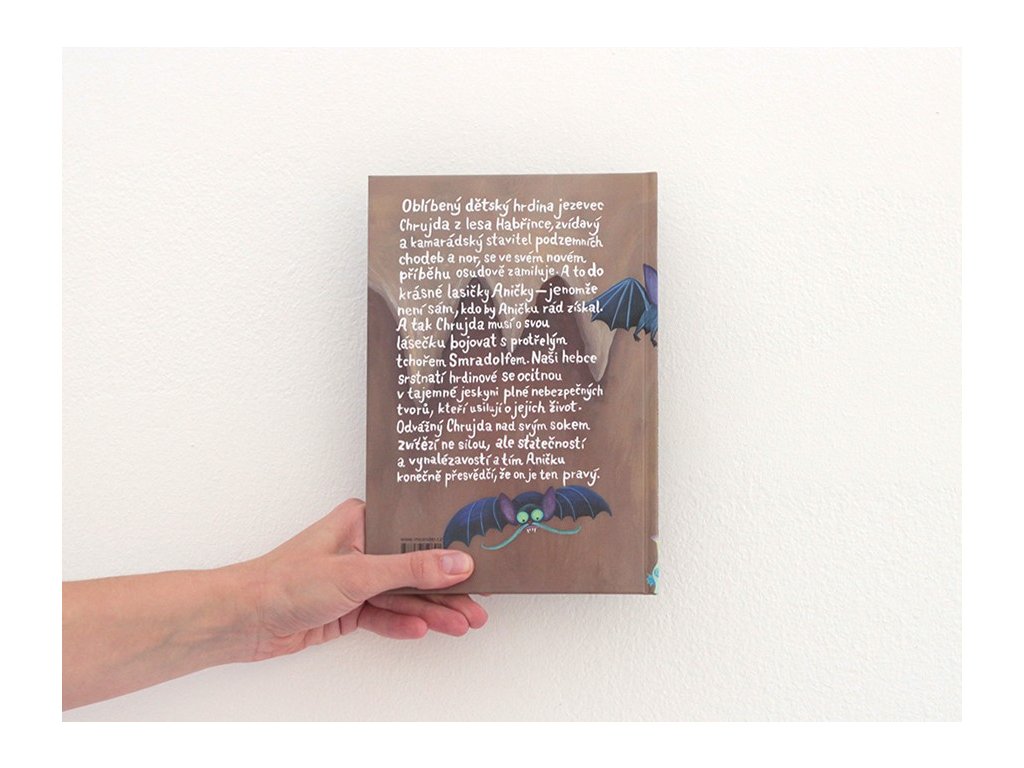 Oblíbený dětský hrdina jezevec
Chrujda z lesa Habřince, zvídavý
a kamarádský stavitel podzemních
chodeb a nor, se ve svém novém
příběhu osudově zamiluje. A to do
krásné lasičky Aničky – jenomže
není sám, kdo by Aničku rád získal.
A tak Chrujda musí o svou
lásečku bojovat s protřelým
tchořem Smradolfem. Naši hebce
srstnatí hrdinové se ocitnou
v tajemné jeskyni plné nebezpečných
tvorů, kteří usilují o jejich život.
Odvážný Chrujda nad svým sokem
zvítězí ne silou, ale statečností
a vynalézavostí a tím Aničku
konečně přesvědčí, že on je ten pravý.
www.meander.cz